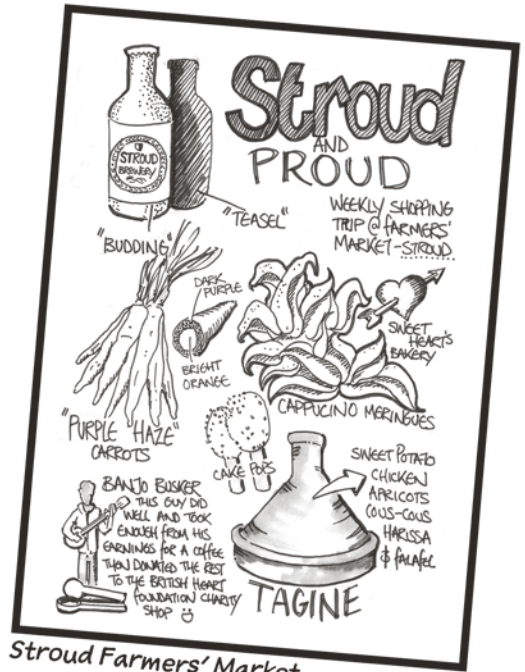 Stroud
AND
PROUD
STROUD
BREWERY
"TEASEL"
"BUDDING"
WEEKLY SHOPPING
TRIP @ FARMERS'
MARKET-STROUD
DARK
PURPLE
BRIGHT
ORANGE
SWEET
HEART'S
BAKERY
CAPPUCINO MERINGUES
"PURPLE HAZE"
CARROTS
CAKE POPS
SWEET POTATO
CHICKEN
APRICOTS
COUS-COUS
HARISSA
& FALAFEL
BANJO BUSKER
THIS GUY DID
WELL AND TOOK
ENOUGH FROM HIS
EARNINGS FOR A COFFEE
THEN DONATED THE REST
TO THE BRITISH HEART
FOUNDATION CHARITY
SHOP
TAGINE
Stroud Farmers' Market